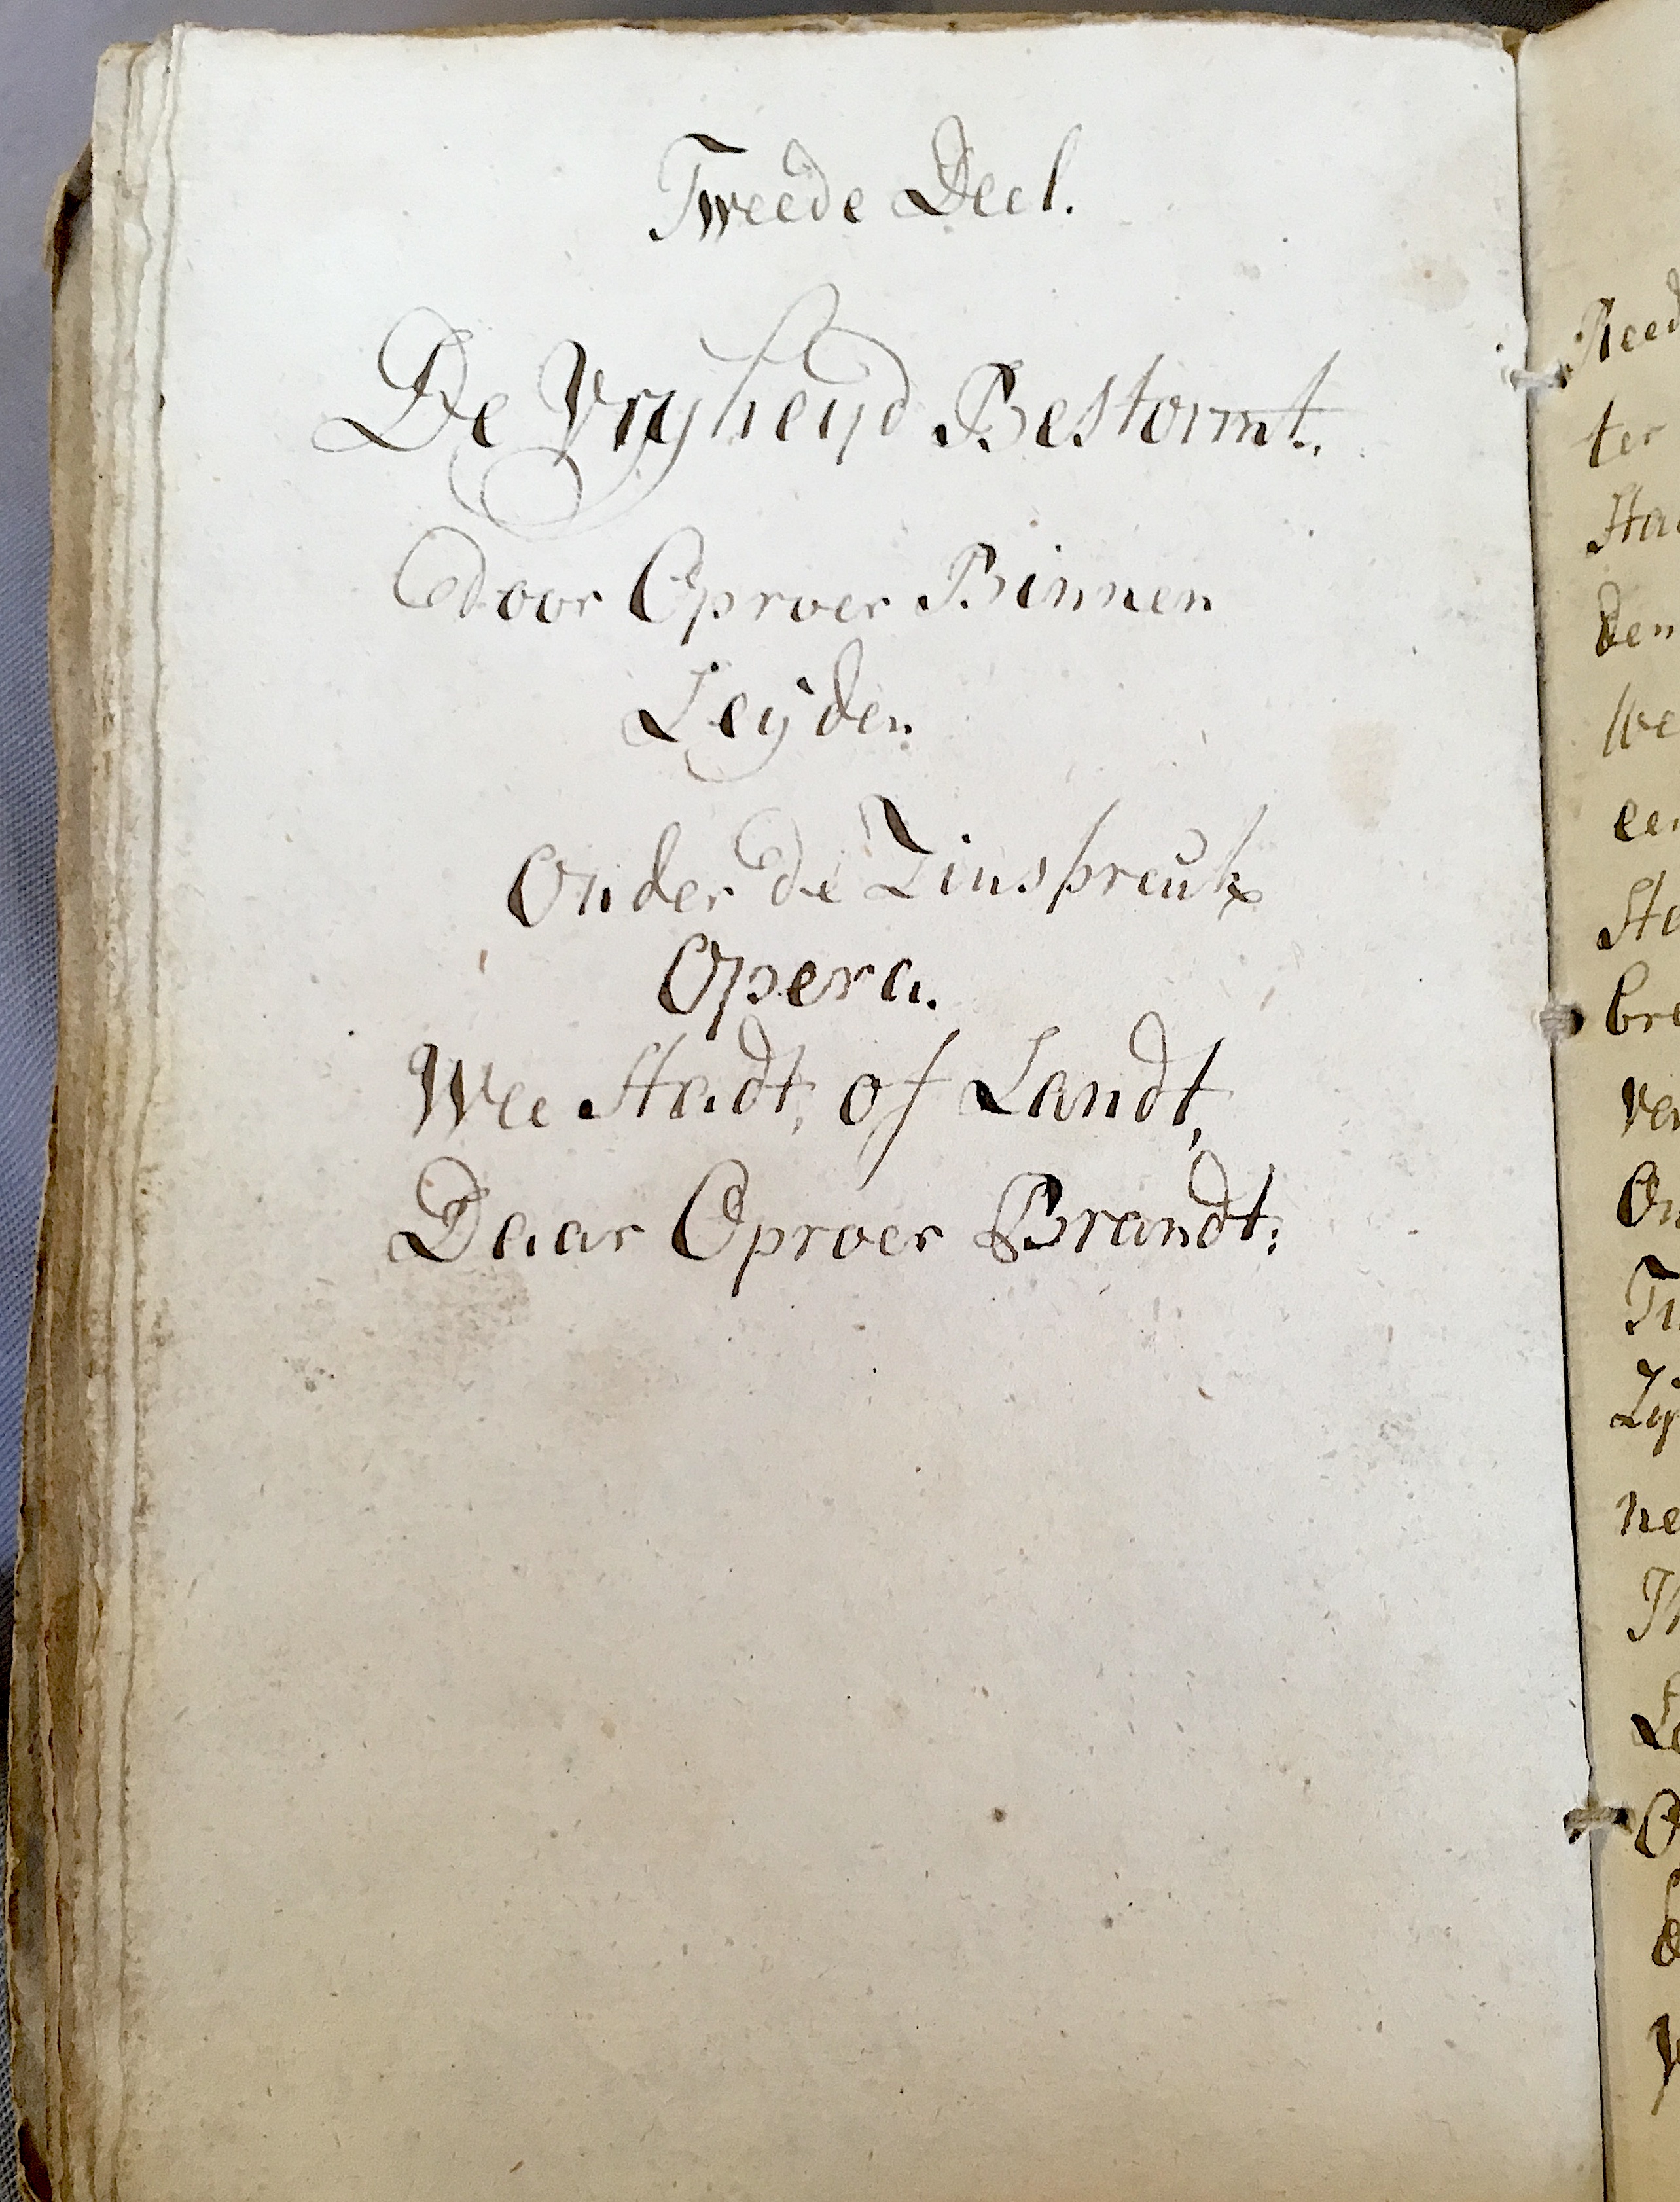 Tweede Deel.
De Vryheyd Bestormt.
door Oproer Binnen
Leyden
Onder de Zinspreuk
Opera.
Wee Stadt, of Landt,
Daar Oproer Brandt:
ter
Sta
den
we
een
Sto
bre
ver
On
Zy
ne